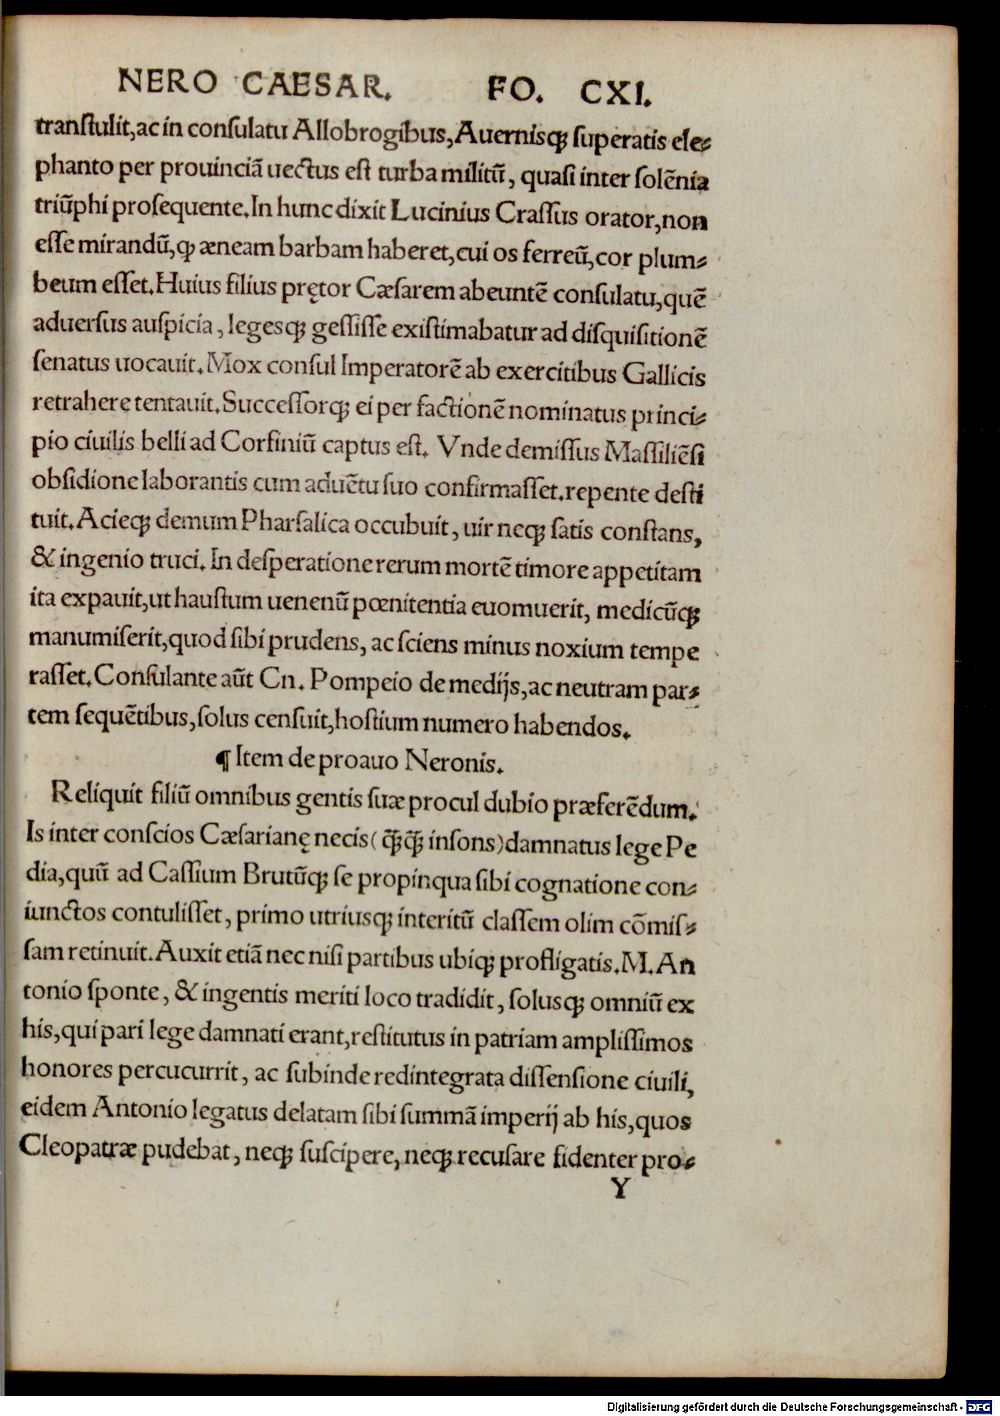 NERO CAESAR. FO. CXI.
tranſtulit,ac in conſulatu Allobrogibus,Auernisqꝫ ſuperatis ele⸗
phanto per prouinciā uectus eſt turba militū, quaſi inter ſolēnia
triūphi proſequente.In hunc dixit Lucinius Craſſus orator,non
eſſe mirandū,ꝙ æneam barbam haberet,cui os ferreū,cor plum⸗
beum eſſet.Huius filius prętor Cæſarem abeuntē conſulatu,quē
aduerſus auſpicia, legesqꝫ geſſiſſe exiſtimabatur ad diſquiſitionē
ſenatus uocauit.Mox conſul Imperatorē ab exercitibus Gallicis
retrahere tentauit.Succeſſorqꝫ ei per factionē nominatus princi⸗
pio ciuilis belli ad Corfiniū captus eſt. Vnde demiſſus Maſſiliēſi
obſidione laborantis cum aduētu ſuo confirmaſſet.repente deſti
tuit.Acieqꝫ demum Pharſalica occubuit, uir neqꝫ ſatis conſtans,
& ingenio truci. In deſperatione rerum mortē timore appetitam
ita expauit,ut hauſtum uenenū pœnitentia euomuerit, medicūqꝫ
manumiſerit,quod ſibi prudens, ac ſciens minus noxium tempe
raſſet.Conſulante aūt Cn. Pompeio de medijs,ac neutram par⸗
tem ſequētibus,ſolus cenſuit,hoſtium numero habendos.
¶ Item de proauo Neronis.
Reliquit filiū omnibus gentis ſuæ procul dubio præferēdum.
Is inter conſcios Cæſarianę necis(q̄̄q̄̄ inſons)damnatus lege Pe
dia,quū ad Caſſium Brutūqꝫ ſe propinqua ſibi cognatione con⸗
iunctos contuliſſet, primo utriusqꝫ interitū claſſem olim cōmiſ⸗
ſam retinuit.Auxit etiā nec niſi partibus ubiqꝫ profligatis.M.An
tonio ſponte, & ingentis meriti loco tradidit, ſolusqꝫ omniū ex
his,qui pari lege damnati erant,reſtitutus in patriam ampliſſimos
honores percucurrit, ac ſubinde redintegrata diſſenſione ciuili,
eidem Antonio legatus delatam ſibi ſummā imperij ab his,quos
Cleopatræ pudebat, neqꝫ ſuſcipere, neqꝫ recuſare fidenter pro⸗
Y
Digitalisierung gefördert durch die Deutsche Forschungsgemeinschaft - DFG